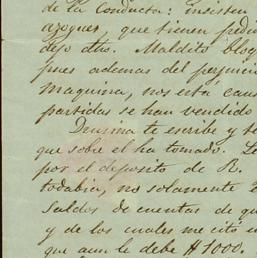 de la Conducta: insisten
azogues, que tienen pedi
dejo dho. Maldito bloq
pues ademas del perjuici
maquina, nos está caus
partidas se han vendido
Drusina te escribe y te
que sobre el ha tomado. Le
por el deposito de R.
todabia, no solamente
saldos de cuentas de qu
y de los cuales me citó un
que aun le debe $1000.